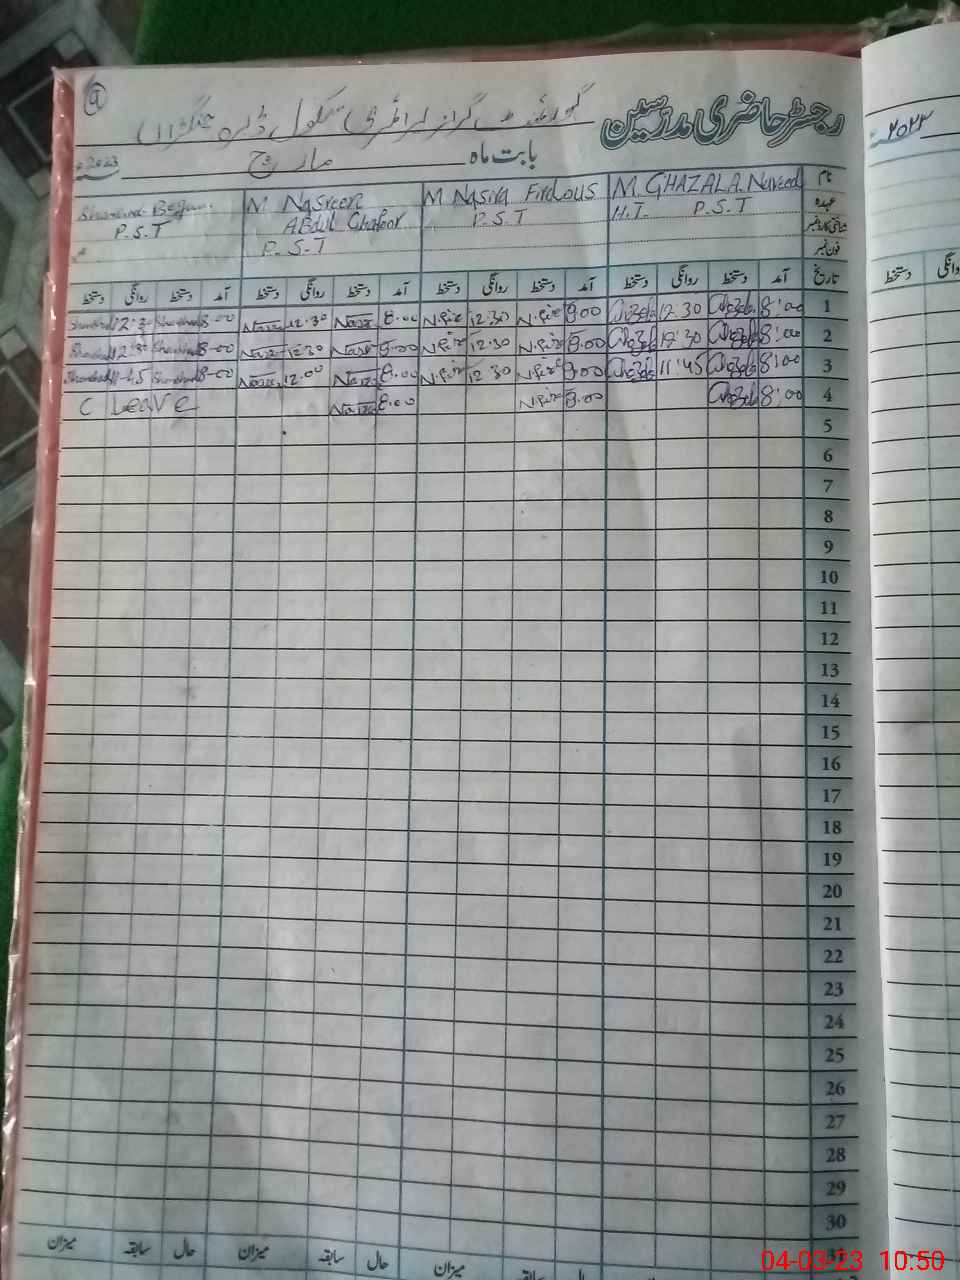 9
رجسٹر حاضری مدرسین گورنمنٹ گرلز پرائمری سکول ڈیرہ
بابت ماہ مارچ 2023
نام M. GHAZALA. Naveed M Nasira Firdous M. Nasreen Begum
عہدہ H.T. P.S.T P.S.T Abdul Ghafoor P.S.T
شناختی کارڈ نمبر P.S.T
فون نمبر
تاریخ آمد دستخط روانگی دستخط آمد دستخط روانگی دستخط آمد دستخط روانگی دستخط آمد دستخط روانگی دستخط
1 8:00 12:30 8:00 12:30 8.00 12.30 8-00 12:30
2 8:00 12:30 8:00 12:30 8:00 12:30 8-00 12:30
3 8:00 11:45 8:00 12:30 8:00 12:00 8-00 11-45
4 8:00 8:00 8:00 C Leave
5
6
7
8
9
10
11
12
13
14
15
16
17
18
19
20
21
22
23
24
25
26
27
28
29
30
31
حال سابقہ میزان حال سابقہ میزان حال سابقہ میزان
۲۰۲۳
روانگی دستخط
04-03-23 10:50